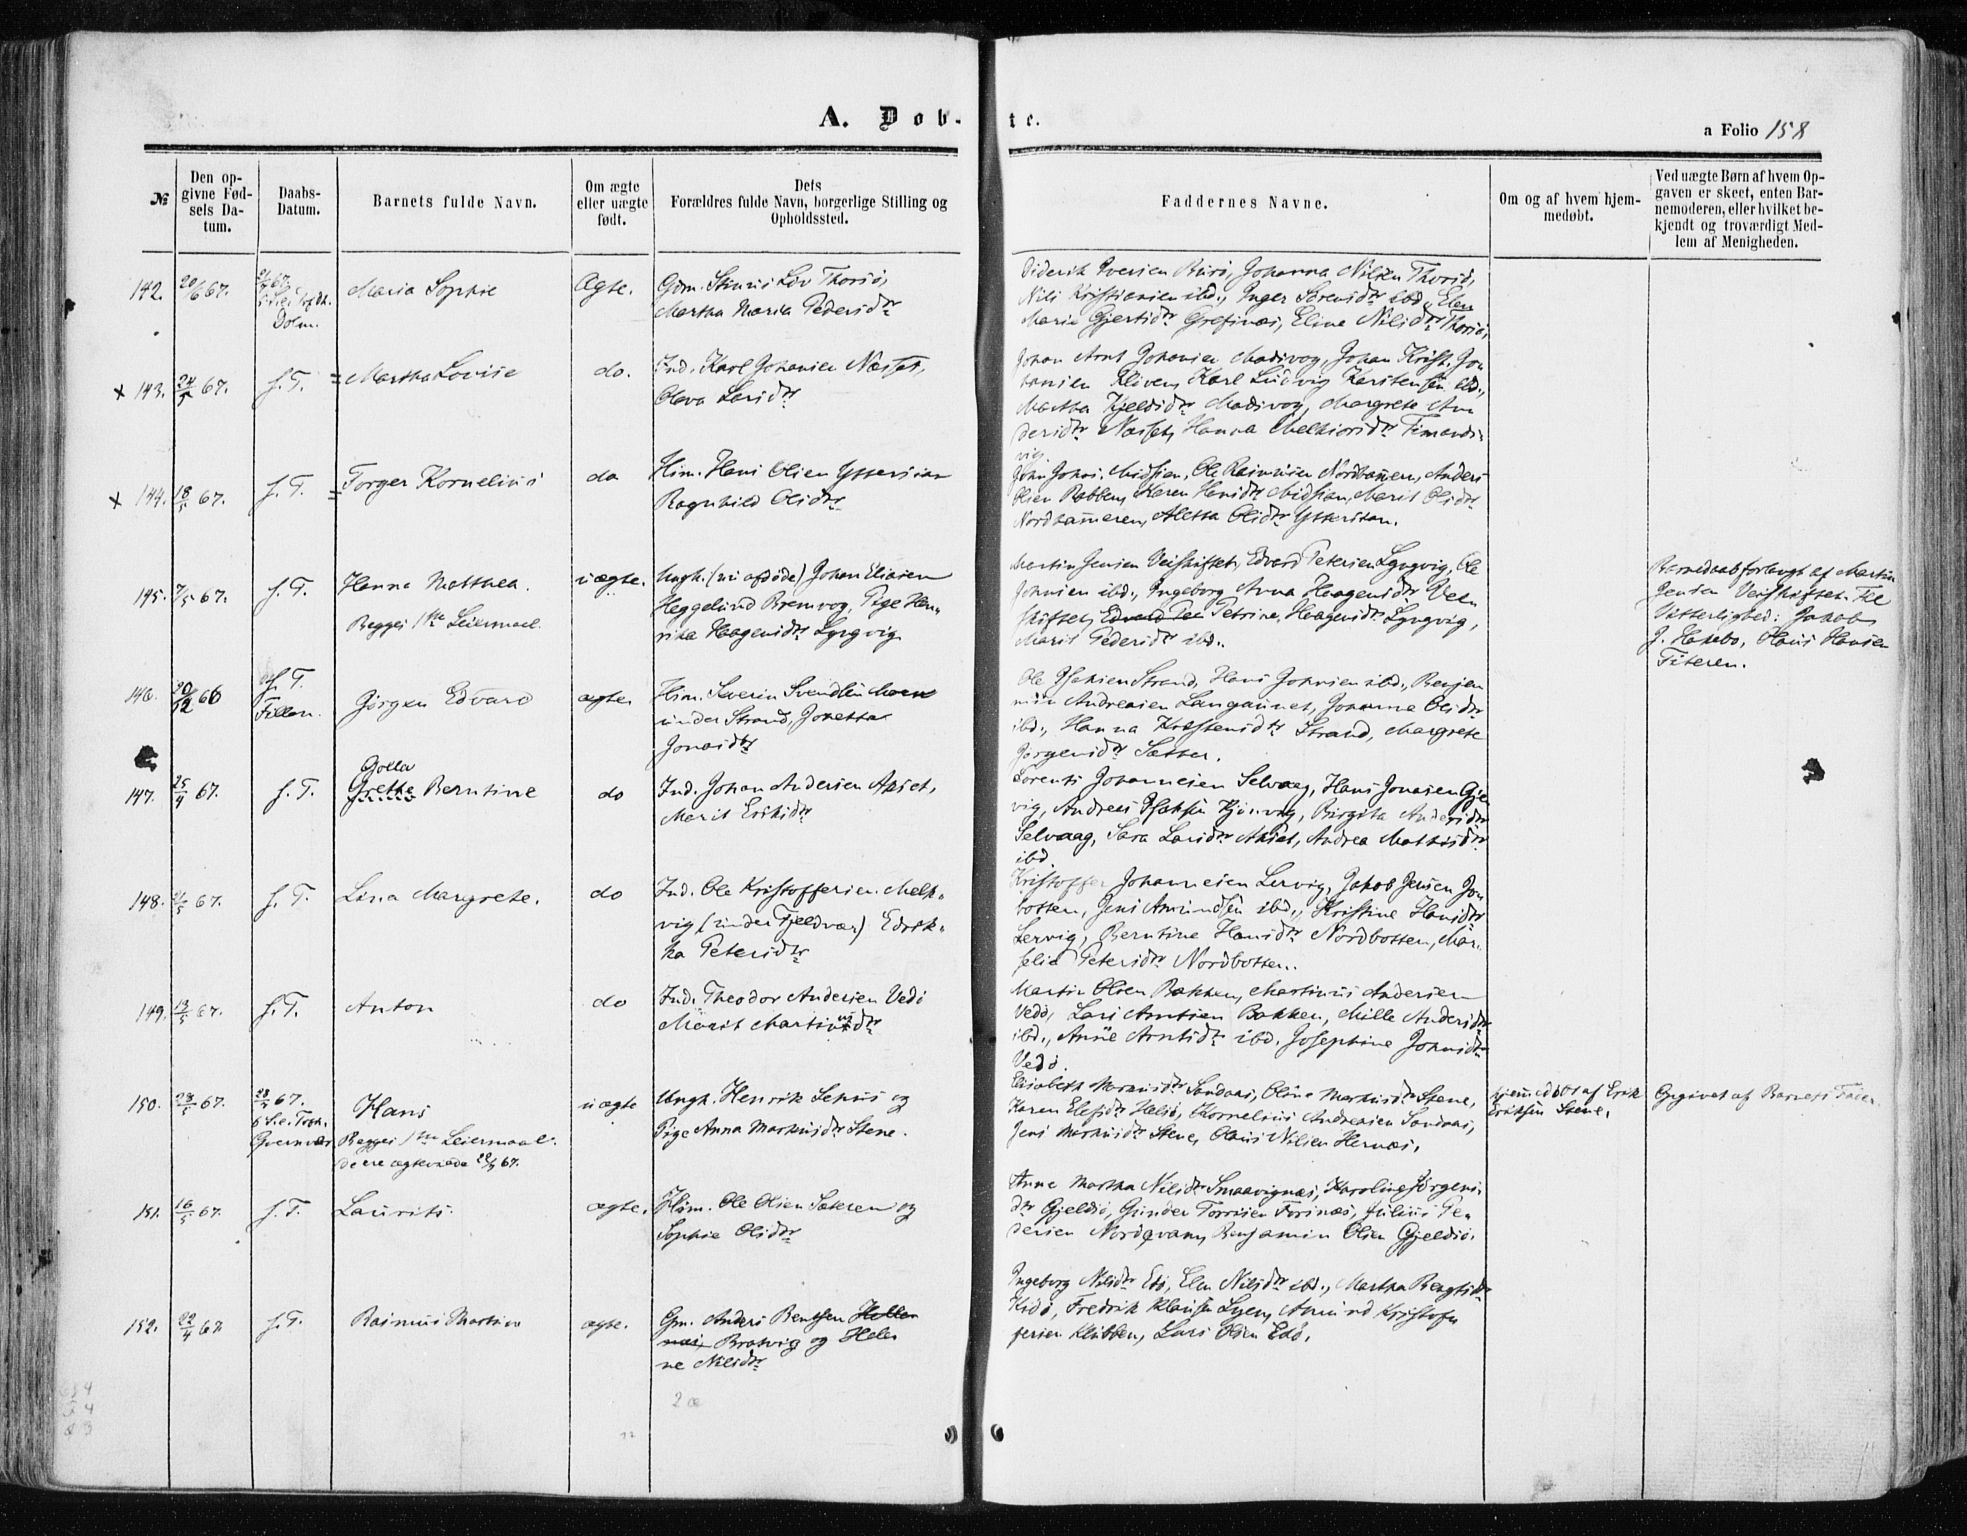 A. Døb-
te.
a Folio 158
№
Den op-
givne Fød-
sels Da-
tum.
Daabs-
Datum.
Barnets fulde Navn.
Om ægte
eller uægte
født.
Dets
Forældres fulde Navn, borgerlige Stilling og
Opholdssted.
Faddernes Navne.
Om og af hvem hjem-
medøbt.
Ved uægte Børn af hvem Op-
gaven er skeet, enten Bar-
nemoderen, eller hvilket be-
kjendt og troværdigt Med-
lem af Menigheden.
142. 20/6 67.
Dolm.
Maria Sophie
Ægte.
Thorsø,
Martha Maria Pedersdtr
Diderik Iversen Burø, Johanna Nilsen Thorsø,
Nils Kristiansen ibd., Inger Sørensdtr ibd., Elen
Marie Gjertsdtr Grefsnæs, Eline Nilsdtr Thorsø,
x 143. 24/5 67.
f. T.
= Martha Lovise
do.
Ind. Karl Johansen Næsset,
Olava Larsdtr
Johan Arnt Johansen Madsvog, Johan Krist. Jo-
hansen Kliven, Karl Ludvig Karstensen ibd.,
Martha Kjeldsdtr Madsvog, Margrete An-
dersdtr Næsset, Hanna Melkiorsdtr
vig.
x 144. 18/5 67.
f. T.
= Torger Kornelius
do
Hum. Hans Olsen Ytterstan
Ragnhild Olsdtr
John Johns. Midsian, Ole Rasmusen Nordhammeren, Anders
Olsen Rabben, Karen Hansdtr Midsian, Marit Olsdtr
Nordhammeren, Aletta Olsdtr Ytterstan.
145. 7/5 67.
f. T.
Hanna Matthea.
Begges 1ste Leiermaal.
uægte.
Ungk. (nu afdøde) Johan Eliasen
Heggelund Bremvog, Pige Hen-
rika Haagensdtr Lyngvig
Martin Jensen Veiskiftet, Edvard Petersen Lyngvig, Ole
Johnsen ibd., Ingeborg Anna Haagensdtr Vei-
skiftet, Edvard Pet Petrine Haagensdtr Lyngvig,
Marit Pedersdtr ibd.
Barnedaab forlangt af Martin
Jensen Veiskiftet. Til
Vitterlighed: Jakob
J. Hakebo, Hans Hansen
Fiteren.
146. 20/12 66
f. T.
Fillan.
Jørgen Edvard
ægte
Hum. Severin Svendsen Moen
under Strand, Jonetta
Jonasdtr
Ole Isaksen Strand, Hans Johnsen ibd., Benja-
min Andreasen Langaunet, Johanna Olsdtr
ibd., Hanna Kristensdtr Strand, Margrete
Jørgensdtr Sætter.
147. 25/4 67.
f. T.
Golla
Grethe Berntine
do
Ind. Johan Andersen Akset,
Merit Eriksdtr
Lorents Johannesen Selvaag, Hans Jonasen Gjes-
vig, Andreas Isaksen Kjønvig, Birgita Andersdtr
Selvaag, Sara Larsdtr Akset, Andrea Mathisdtr
ibd.
148. 67.
f. T.
Lina Margrete.
do
Ind. Ole Kristoffersen. Melk-
vig (under Fjeldvær) Edrik-
ka Petersdtr
Kristoffer Johannesen Lervig, Jakob Jensen Jon-
botten, Jens Amundsen ibd., Kristine Hansdtr
Lervig, Berntine Hansdtr Nordbotten, Mar-
selia Petersdtr Nordbotten.
149. 13/5 67.
f. T.
Anton
do
Ind. Theodor Andersen Vedø
Marit Martinusdtr
Martin Olsen Bakken, Martinus Andersen
Vedø, Lars Arntsen Bakken, Mille Andersdtr
ibd., Anne Arntsdtr ibd. Josephine Johnsdtr
Vedø.
150. 28/5 67.
67.
Hans
Begges 1ste Leiermaal.
de ere ægteviede 67.
uægte
Ungk. Henrik Sehus og
Pige Anna Markusdtr Stene.
Elisabeth Markusdtr Sandaas, Oline Markusdtr Stene,
Karen Elefsdtr Helsø, Kornelius Andreasen Sandaas,
Jens Markusdtr Stene, Olaus Nilsen Hernæs.
Hjemmedøbt af Erik
Eriksen Stene.
Opgivet af Barnets Fader
151. 16/5 67.
f. T.
Laurits.
ægte.
Hum. Ole Olsen Sæteren og
Sophie Olsdtr
Anne Martha Nilsdtr Smaavignæs, Karoline Jørgens-
dtr Gjeldsø, Gunder Torrisen Forsnæs, Julius Pe-
dersen Nordqvam, Benjamin Olsen Gjeldsø.
152. 22/4 67.
f. T.
Rasmus Martin
ægte.
Gm. Anders Bentsen Hellen
næs, Bratvig og Hele-
ne Nilsdtr
Ingeborg Nilsdtr Edø, Elen Nilsdtr ibd., Martha Bengtsdtr
Edø, Fredrik Klausen Lyen, Amund Kristof-
fersen Klubben, Lars Olsen Edø.